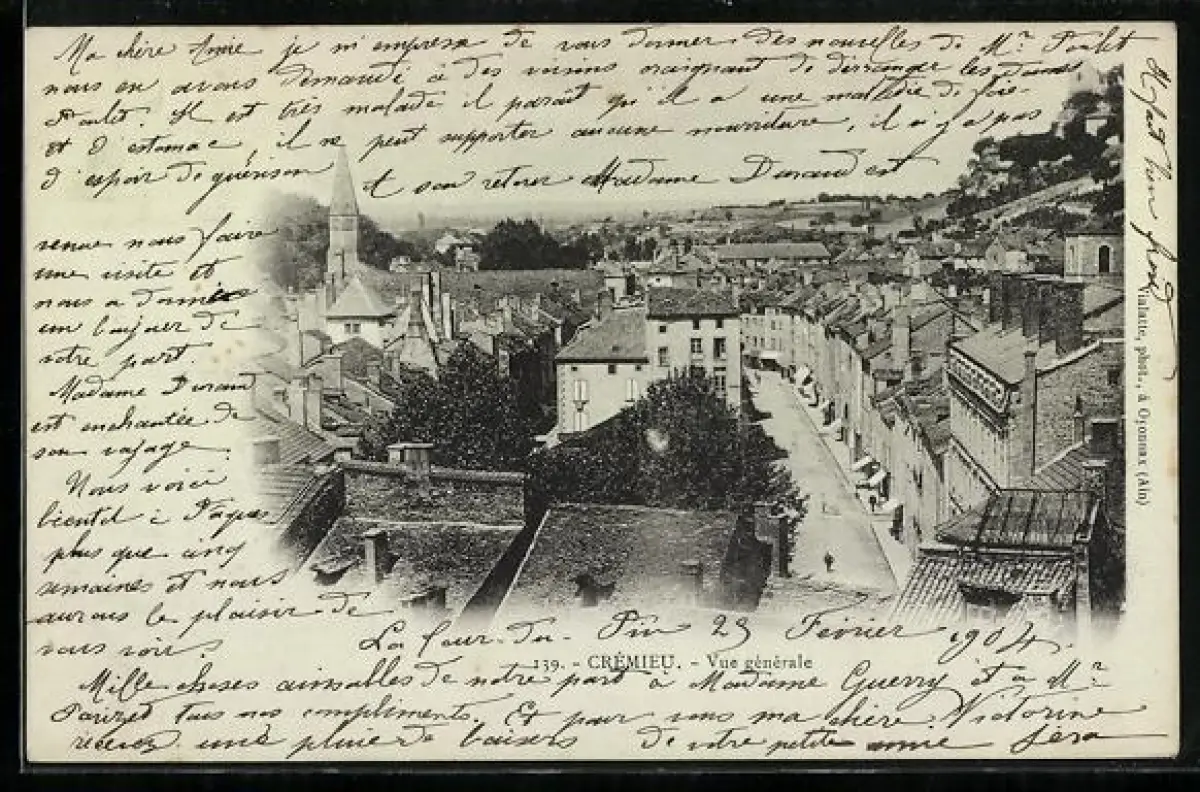 Ma chère Amie je m'empresse de vous donner des nouvelles de Mr Poulet
nous en avons demandé à des voisins craignant de derranger les dames
Poulet. Il est très malade il paraît qu'il a une maladie de foie
et d'estomac, il ne peut supporter aucune nourriture, il n'y a pas
d'espoir de guérison et son retour Madame Durand est
venue nous faire
une visite et
nous a donné
un bonjour de
votre part.
Madame Durand
est enchantée de
son voyage
Nous voici
bientot à Paques
plus que cinq
semaines et nous
aurons le plaisir de
vous voir.
La Tour-du-Pin 23 Février 1904
139. - CRÉMIEU. - Vue générale
Mille choses aimables de notre part à Madame Guerry et à Mr
tous nos compliments. Et pour vous ma chère Victorine
recevez une pluie de baisers de votre petite amie
Il fait bien froid
Vialatte, phot., à Oyonnax (Ain)